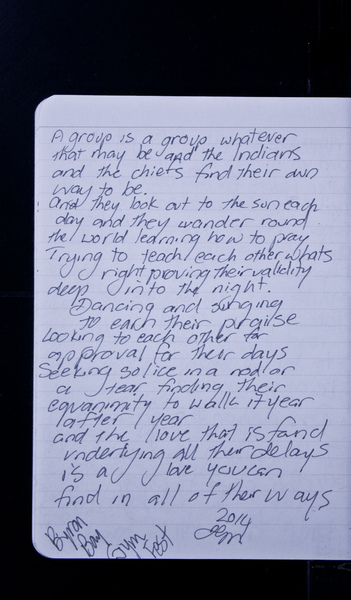 A group is a group whatever
that may be and the Indians
and the chiefs find their own
way to be.
and they look out to the sun each
day and they wander round
the world learning how to pray
Trying to teach each other whats
right proving their validity
deep into the night.
Dancing and singing
to each their praise
Looking to each other for
approval for their days
Seeking solice in a nod or
a tear finding their
equanimity to walk it year
after year
and the love that is fand
underlying all their delays
is a love you can
find in all of their ways
2014
Byron
Bay
Gym
Fest